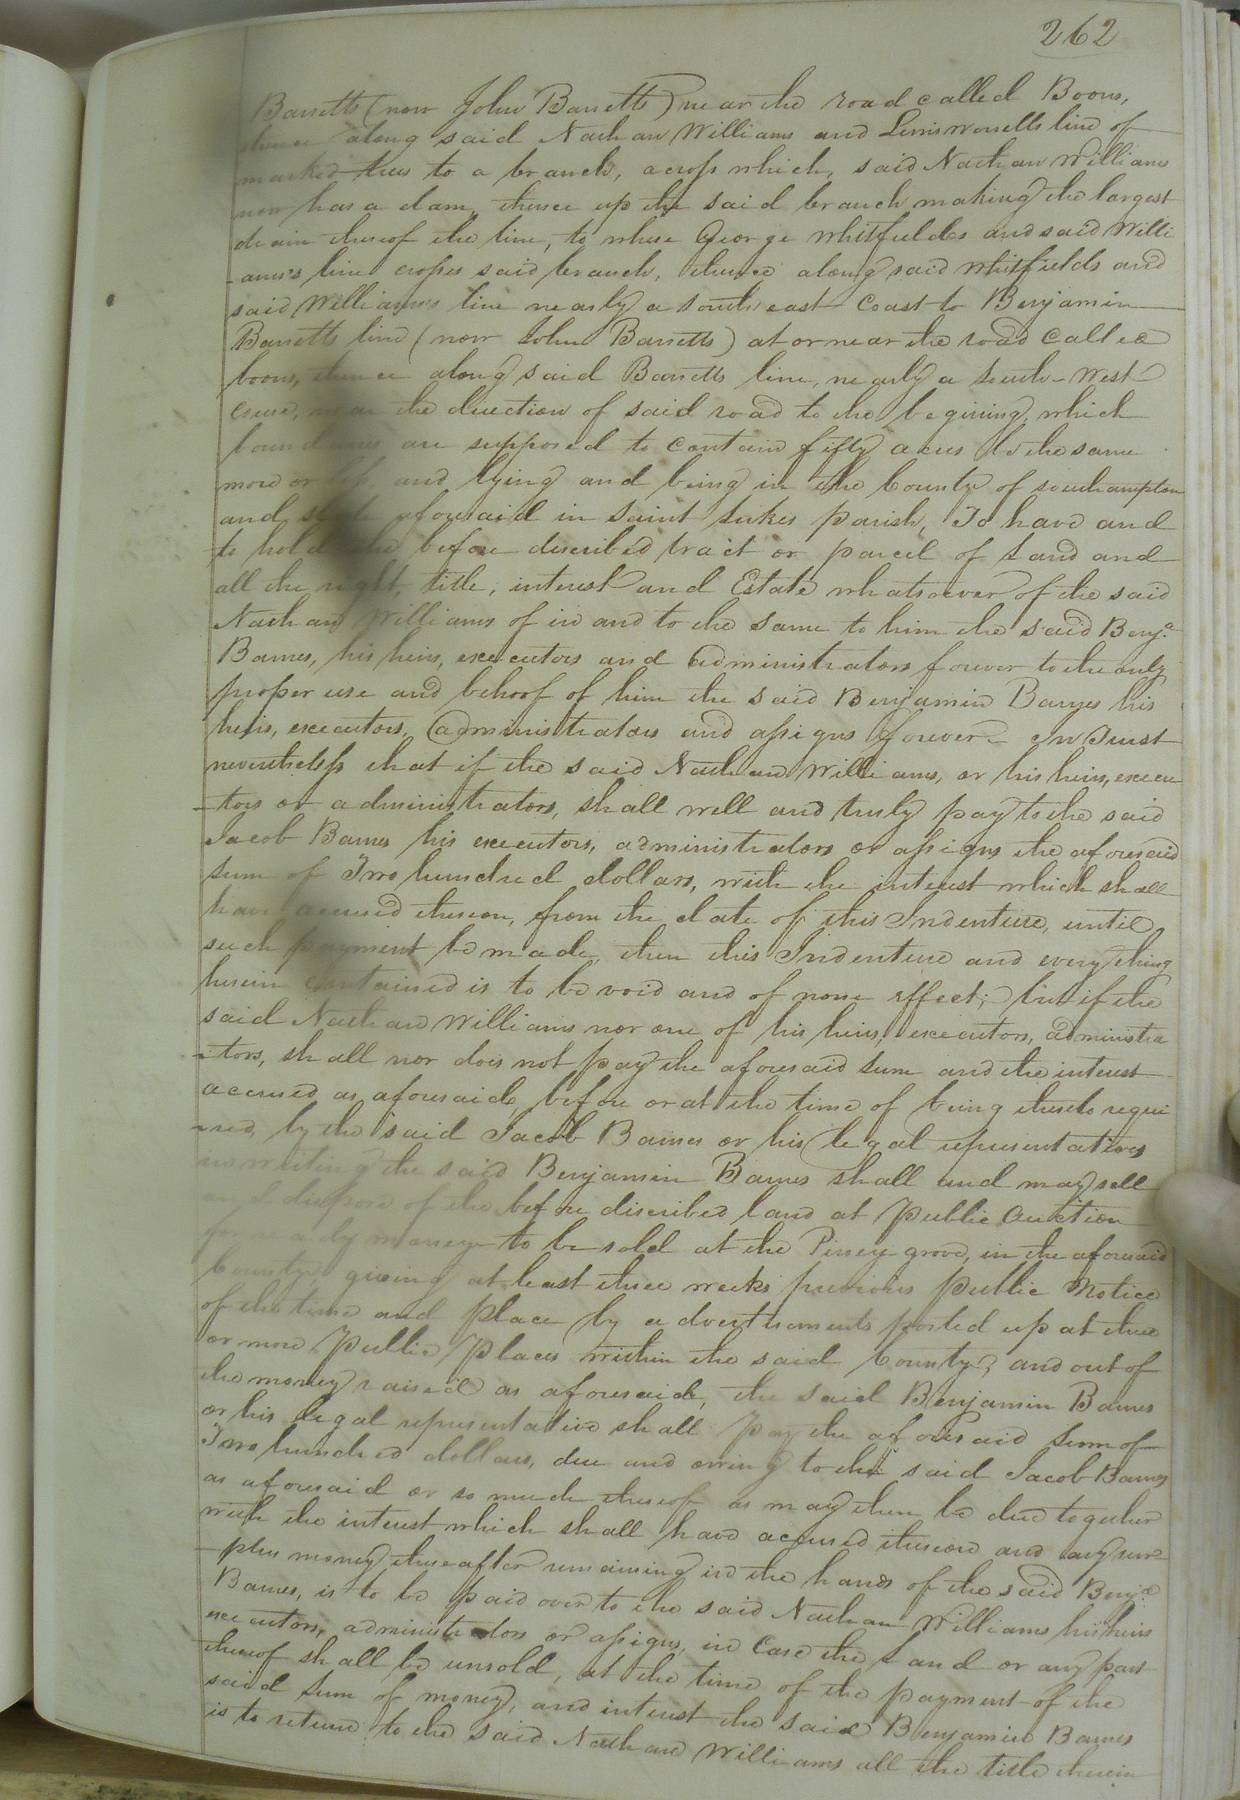 262
Barretts (now John Barretts) near the road called Boons,
thence along said Nathan Williams and Lewis Worrells line of
marked trees to a branch, across which, said Nathan Williams
now has a dam, thence up the said branch making the largest
drain thereof the line, to where George Whitfieldes and said Willi
-ams's line crosses said branch, thence along said Whitfields and
said Williams line nearly a south east Coast to Benjamin
Barretts line (now John Barretts) at or near the road Called
boons, thence along said Barretts line, nearly a South-West
Course, near the direction of said road to the begining, which
boundaries are supposed to contain fifty acres be the same
more or less, and lying and being in the County of Southampton
and state aforesaid in Saint Lukes parish, To have and
to hold the before described tract or parcel of Land and
all the right, title, interest and Estate whatsoever of the said
Nathan Williams of in and to the Same to him the said Benja
Barnes, his heirs, executors and administrators forever to the only
proper use and behoof of him the said Benjamin Barnes his
heirs, executors, administrators and assigns forever In Trust
nevertheless that if the said Nathan Williams, or his heirs, execu
-tors or administrators, shall well and truly pay to the said
Jacob Barnes his executors, administrators or assigns the aforesaid
sum of Two hundred dollars, with the interest which shall
have accrued thereon, from the date of this Indenture, until
such payment be made, then this Indenture and every thing
herein contained is to be void and of none effect; but if the
said Nathan Williams nor one of his heirs, executors, administra
-tors, shall nor does not pay the aforesaid sum and the interest
accrued as aforesaid, before or at the time of being thereto requi
-red, by the said Jacob Barnes or his legal representatives
in writing the said Benjamin Barnes shall and may sell
and dispose of the before discribed land at Public Auction
for ready money to be sold at the Piney grove, in the aforesaid
County, giving at least three weeks previous public Notice
of the time and place by advertisements posted up at three
or more Public Places within the said County, and out of
the money raised as aforesaid, the said Benjamin Barnes
or his legal representative shall Pay the aforesaid Sum of
Two hundred dollars, due and owing to the said Jacob Barnes
as aforesaid or so much thereof as may then be due together
with the interest which shall have accrued thereon and any sur
-plus money thereafter remaining in the hands of the said Benja
Barnes, is to be paid over to the said Nathan Williams his heirs
executors, administrators or assigns, in Case the Land or any part
thereof shall be unsold, at the time of the payment of the
said Sum of money, and interest the said Benjamin Barnes
is to return to the said Nathan Williams all the title therein